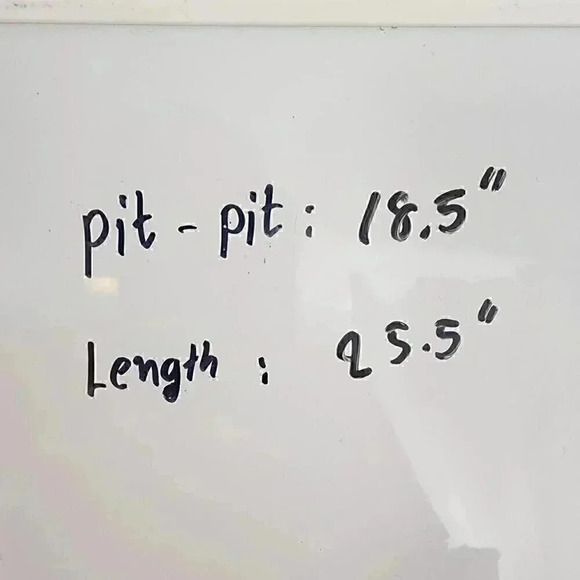 pit - pit : 18.5"
Length : 25.5"